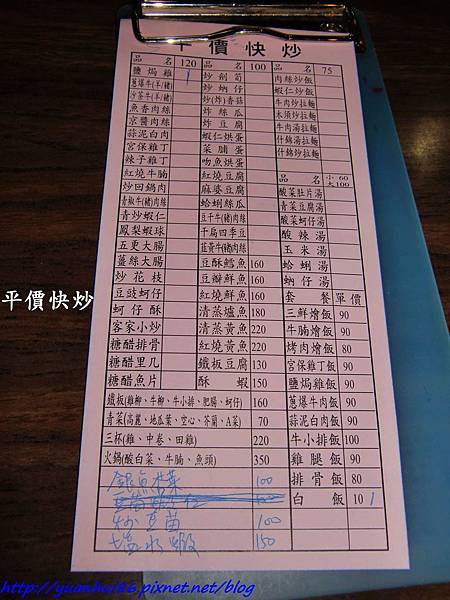 平價快炒
品名 120
鹽焗雞 1
蔥爆牛(羊/豬)
沙茶牛(羊/豬)
魚香肉絲
京醬肉絲
蒜泥白肉
宮保雞丁
辣子雞丁
紅燒牛腩
炒回鍋肉
青椒牛(豬)肉絲
青炒蝦仁
鳳梨蝦球
五更大腸
薑絲大腸
炒花枝
豆豉蚵仔
蚵仔酥
客家小炒
糖醋排骨
糖醋里几
糖醋魚片
品名 100
炒劍筍
炒蚋仔
炒(炸)香菇
炸絲瓜
炸豆腐
蝦仁烘蛋
菜脯蛋
吻魚烘蛋
紅燒豆腐
麻婆豆腐
蛤蜊絲瓜
豆干牛(豬)肉絲
干扁四季豆
韮黃牛(豬)肉絲
豆酥鱈魚 160
豆瓣鮮魚 160
紅燒鮮魚 160
清蒸鱸魚 180
清蒸黃魚 220
紅燒黃魚 220
鐵板豆腐 130
酥蝦 150
品名 75
肉絲炒飯
蝦仁炒飯
牛肉炒拉麵
木須炒拉麵
牛肉湯拉麵
什錦湯拉麵
什錦炒拉麵
品名 小 60 大100
酸菜肚片湯
青菜豆腐湯
酸菜蚵仔湯
酸辣湯
玉米湯
蛤蜊湯
蚋仔湯
套餐 單價
三鮮燴飯 90
牛腩燴飯 90
烤肉燴飯 80
宮保雞丁飯 90
鹽焗雞飯 90
蔥爆牛肉飯 90
蒜泥白肉飯 90
牛小排飯 100
雞腿飯 90
排骨飯 80
白飯 10 1
鐵板(雞柳、牛柳、牛小排、肥腸、蚵仔) 160
青菜(高麗、地瓜葉、空心、芥蘭、A菜) 70
三杯(雞、中卷、田雞) 220
火鍋(酸白菜、牛腩、魚頭) 350
銀魚木菜 100
炒豆苗 100
塩水蝦 150
平價快炒
http://yuanhui86.pixnet.net/blog